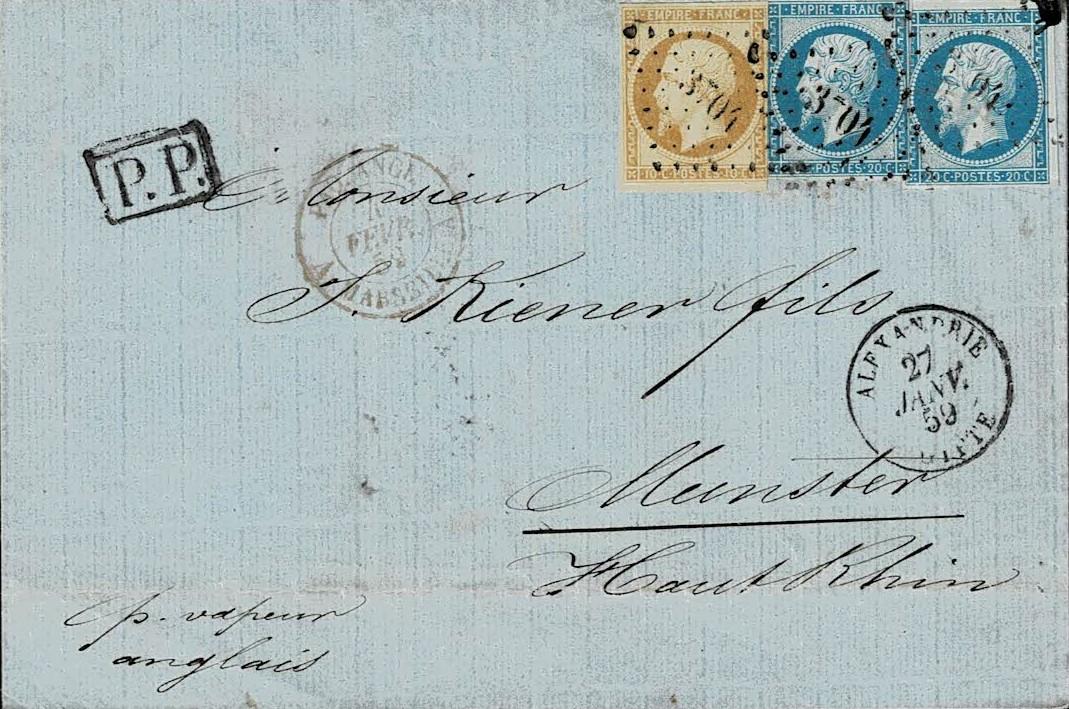 EMPIRE FRANC
EMPIRE FRANC
EMPIRE FRANC
3704
3704
04
10 C·POSTES·10 C
POSTES·20 C
20 C·POSTES·20 C
P.P.
Monsieur
FEVR.
A MARSEILLE
J. Kiener fils
ALEXANDRIE
27
JANV.
59
Munster
Haut Rhin
p. vapeur
anglais